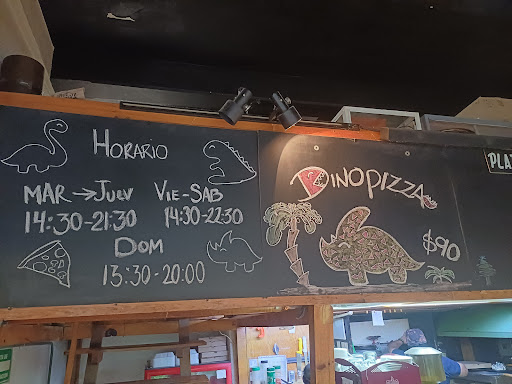 HORARIO
MAR → JUEV VIE-SAB
14:30-21:30 14:30-22:30
DOM
13:30-20:00
DINOPIZZA
$90
PLA